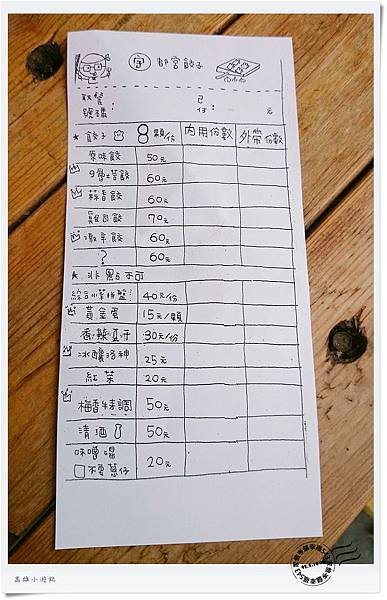 宇 都宮餃子
取餐號碼：
已付： 元
★ 餃子 8顆/份 內用份數 外帶份數
原味餃 50元
60元
蒜香餃 60元
70元
激辛餃 60元
? 60元
★ 非點不可
綜合小菜拼盤 40元/份
黃金蛋 15元/顆
香辣豆干 30元/份
冰釀洛神 25元
紅茶 20元
梅香特調 50元
清酒 50元
味噌湯 20元
□不要蔥仔
高雄小遊記